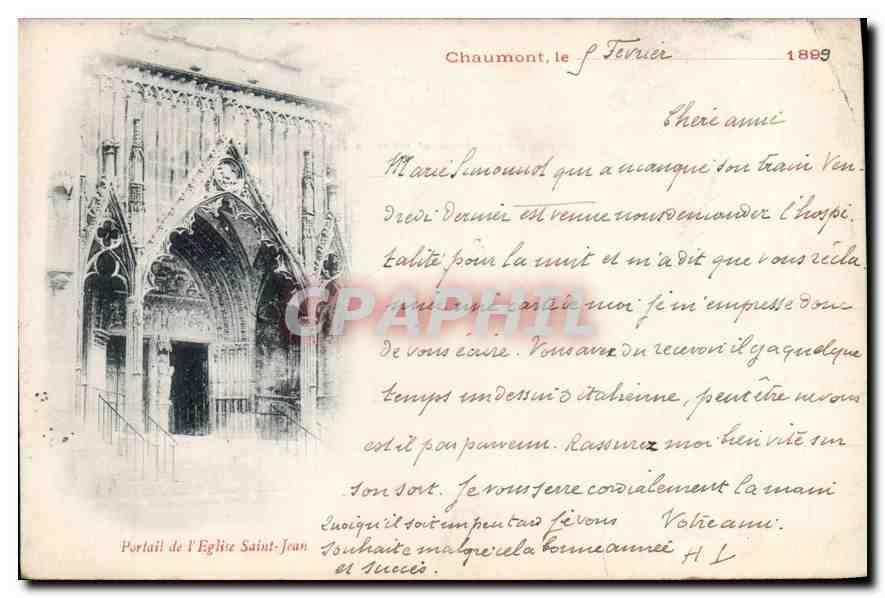 Chaumont, le 5 Février 1899
Chère amie
Marie Simonnot qui a manqué son train Ven-
dredi dernier est venue nous demander l'hospi
talité pour la nuit et m'a dit que vous récla
miez une carte de moi je m'empresse donc
de vous écrire. Vous avez du recevoir il y a quelque
temps un dessin d'italienne, peut être ne vous
est il pas parvenu. Rassurez moi bien vite sur
son sort. Je vous serre cordialement la main
Votre amie.
H L
Quoiqu'il soit un peu tard je vous
souhaite malgré cela bonne année
et succès.
Portail de l'Eglise Saint-Jean
CPAPHIL